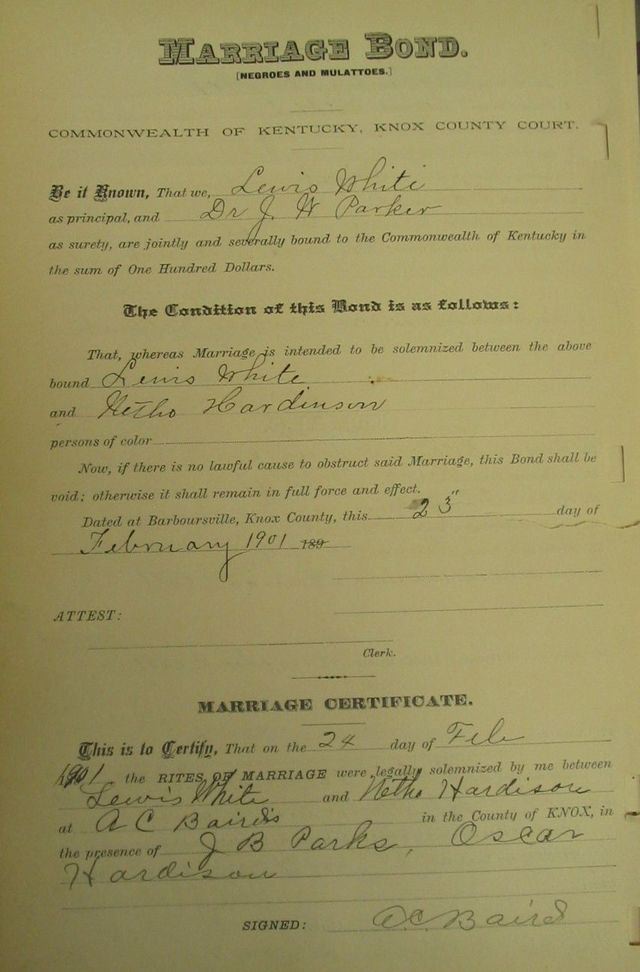 MARRIAGE BOND.
[NEGROES AND MULATTOES.]
COMMONWEALTH OF KENTUCKY, KNOX COUNTY COURT.
Be it Known, That we, Lewis White
as principal, and Dr J. W Parker
as surety, are jointly and severally bound to the Commonwealth of Kentucky in
the sum of One Hundred Dollars.
The Condition of this Bond is as follows:
That, whereas Marriage is intended to be solemnized between the above
bound Lewis White
and Netho Hardinson
persons of color
Now, if there is no lawful cause to obstruct said Marriage, this Bond shall be
void; otherwise it shall remain in full force and effect.
Dated at Barboursville, Knox County, this 23" day of
February 1901 189
ATTEST:
Clerk.
MARRIAGE CERTIFICATE.
This is to Certify, That on the 24 day of Feb
1901 the RITES OF MARRIAGE were legally solemnized by me between
Lewis White and Netho Hardison
at A C Baird's in the County of KNOX, in
the presence of J B Parks, Oscar
Hardison
SIGNED: A.C. Baird